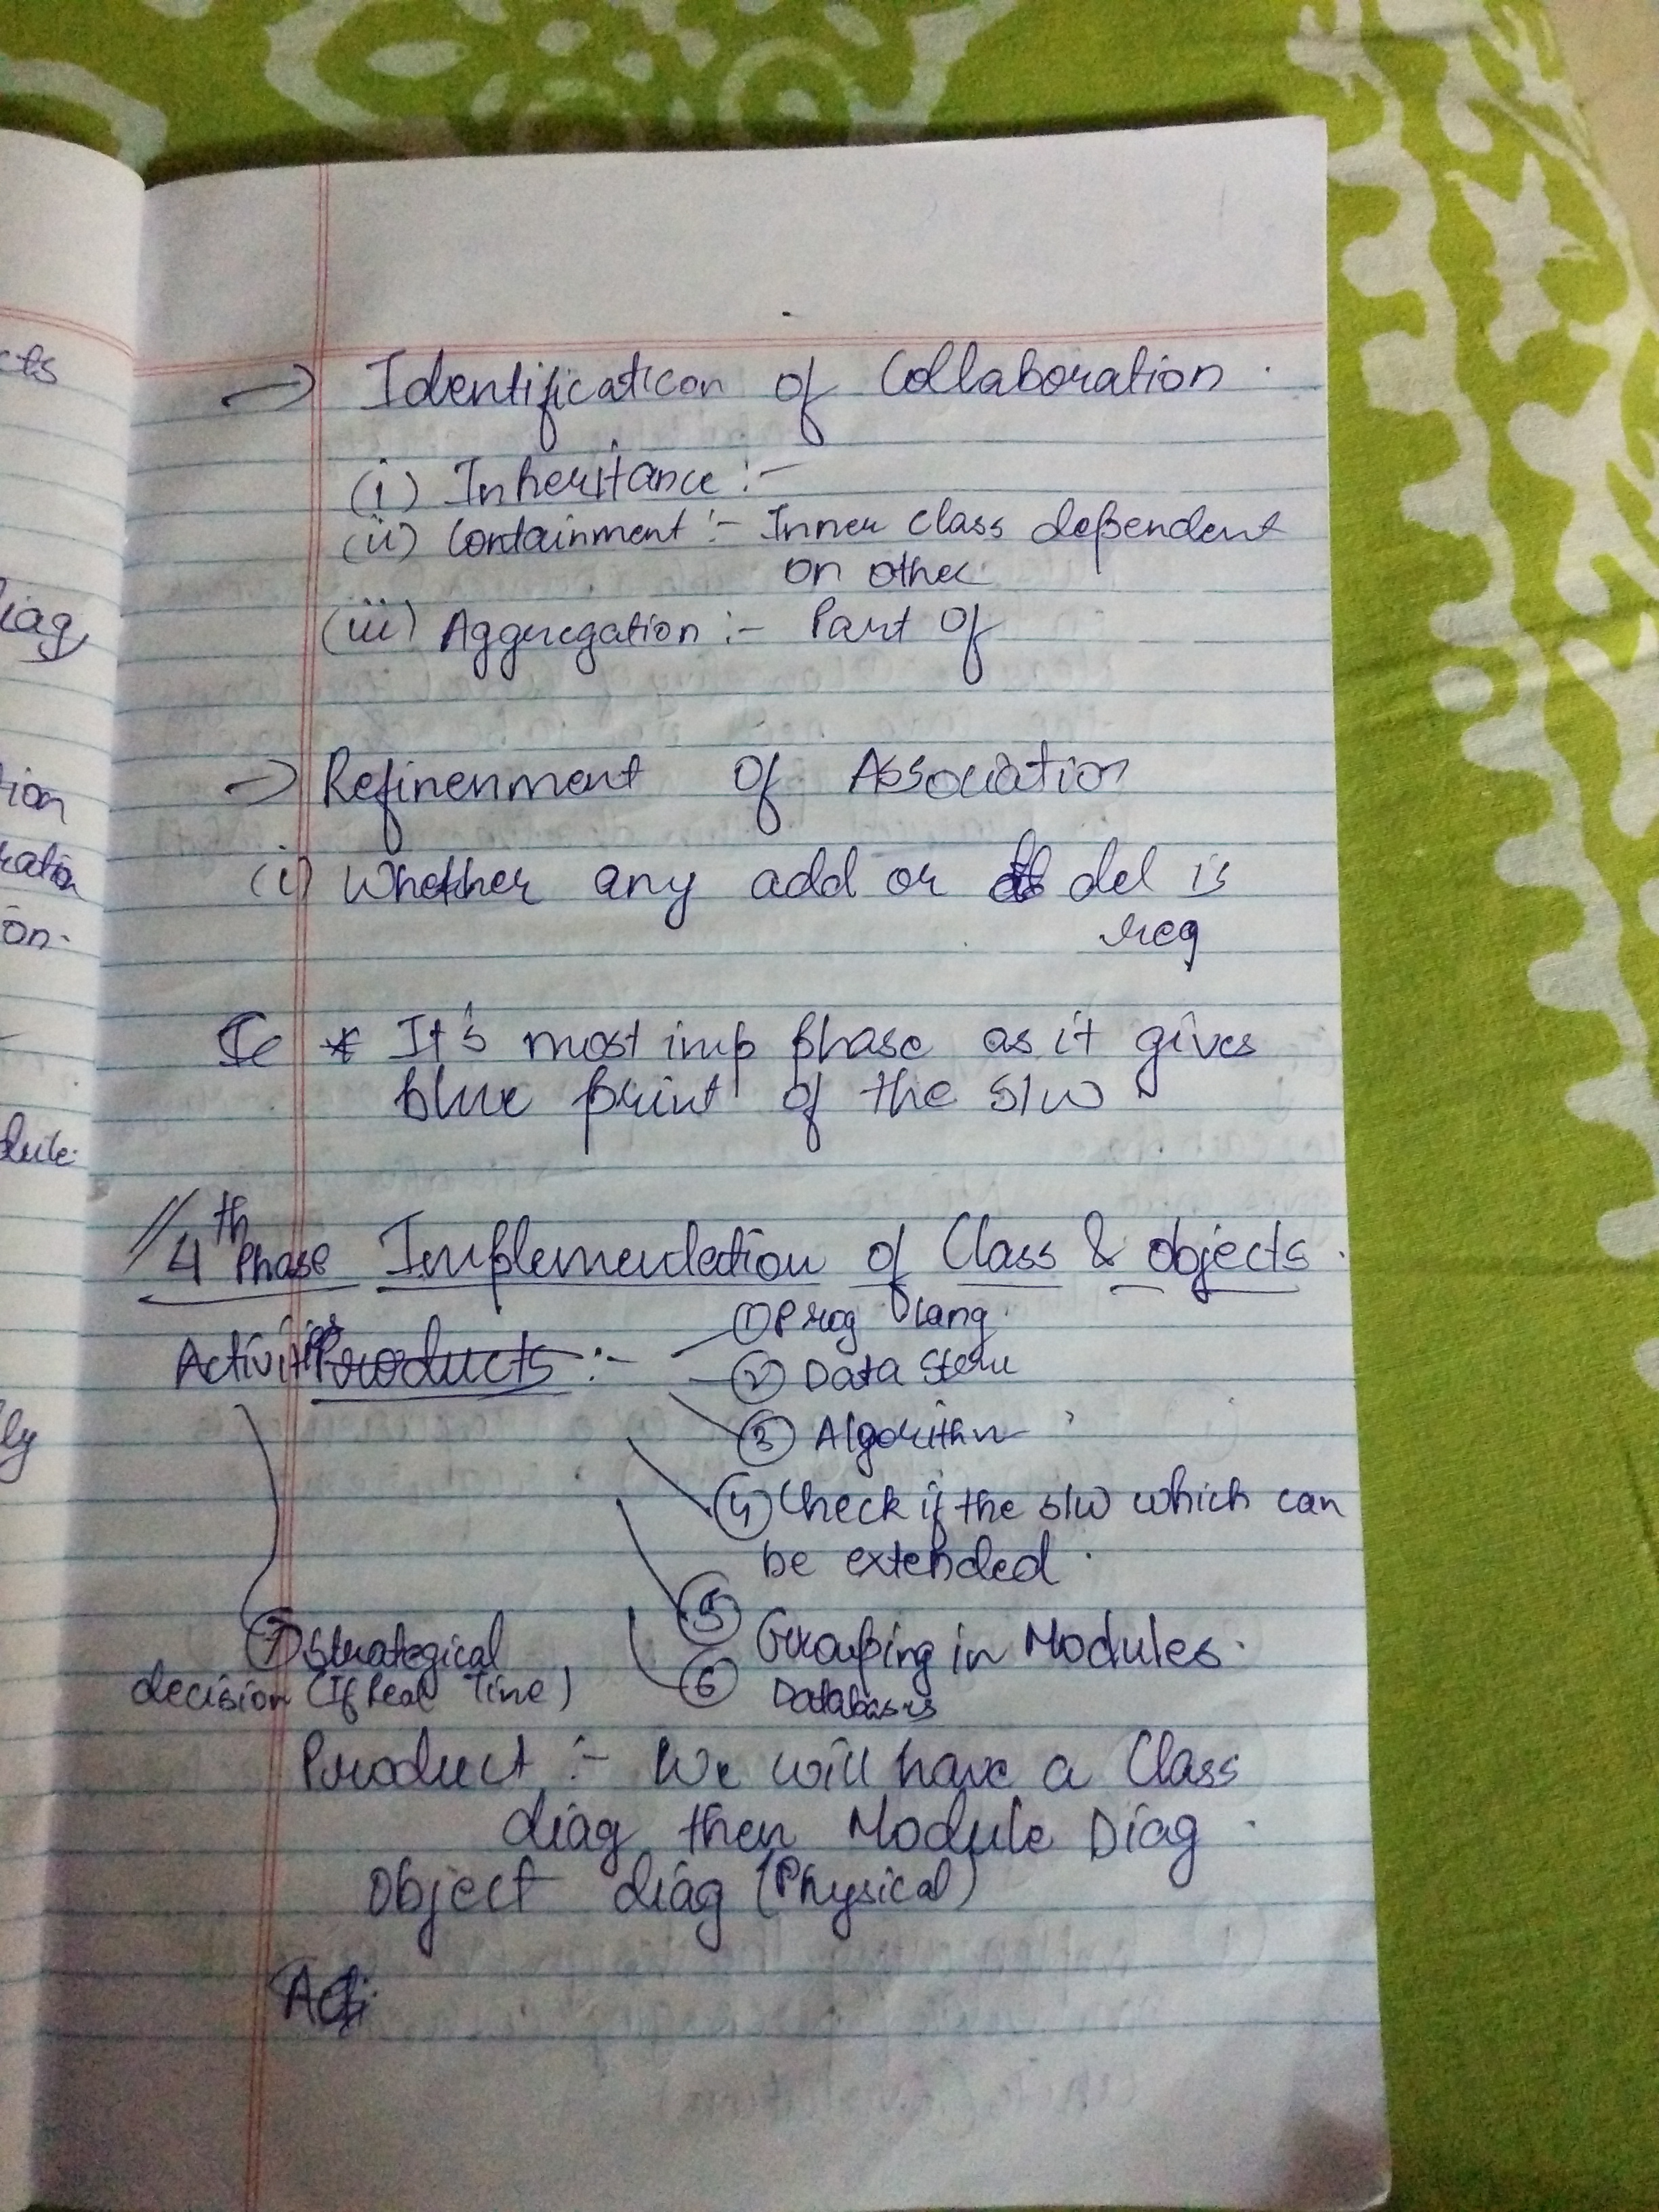 cts
iag
ion
ration
on.
dule.
ly
→ Identification of Collaboration.
(i) Inheritance :-
(ii) Containment :- Inner class dependent
on other
(iii) Aggregation :- Part of
→ Refinenment of Association
(i) Whether any add or del is
req
* It's most imp phase as it gives
blue print of the s/w
// 4th Phase Implementation of Class & objects.
Activities Products :- ① Prog lang.
② Data
③ Algorithm
④ Check if the s/w which can
be extended.
⑤ Grouping in Modules.
⑥ Databases
⑦ Strategical
decision (If Real Time)
Product :- We will have a Class
diag then Module Diag.
object diag (Physical)